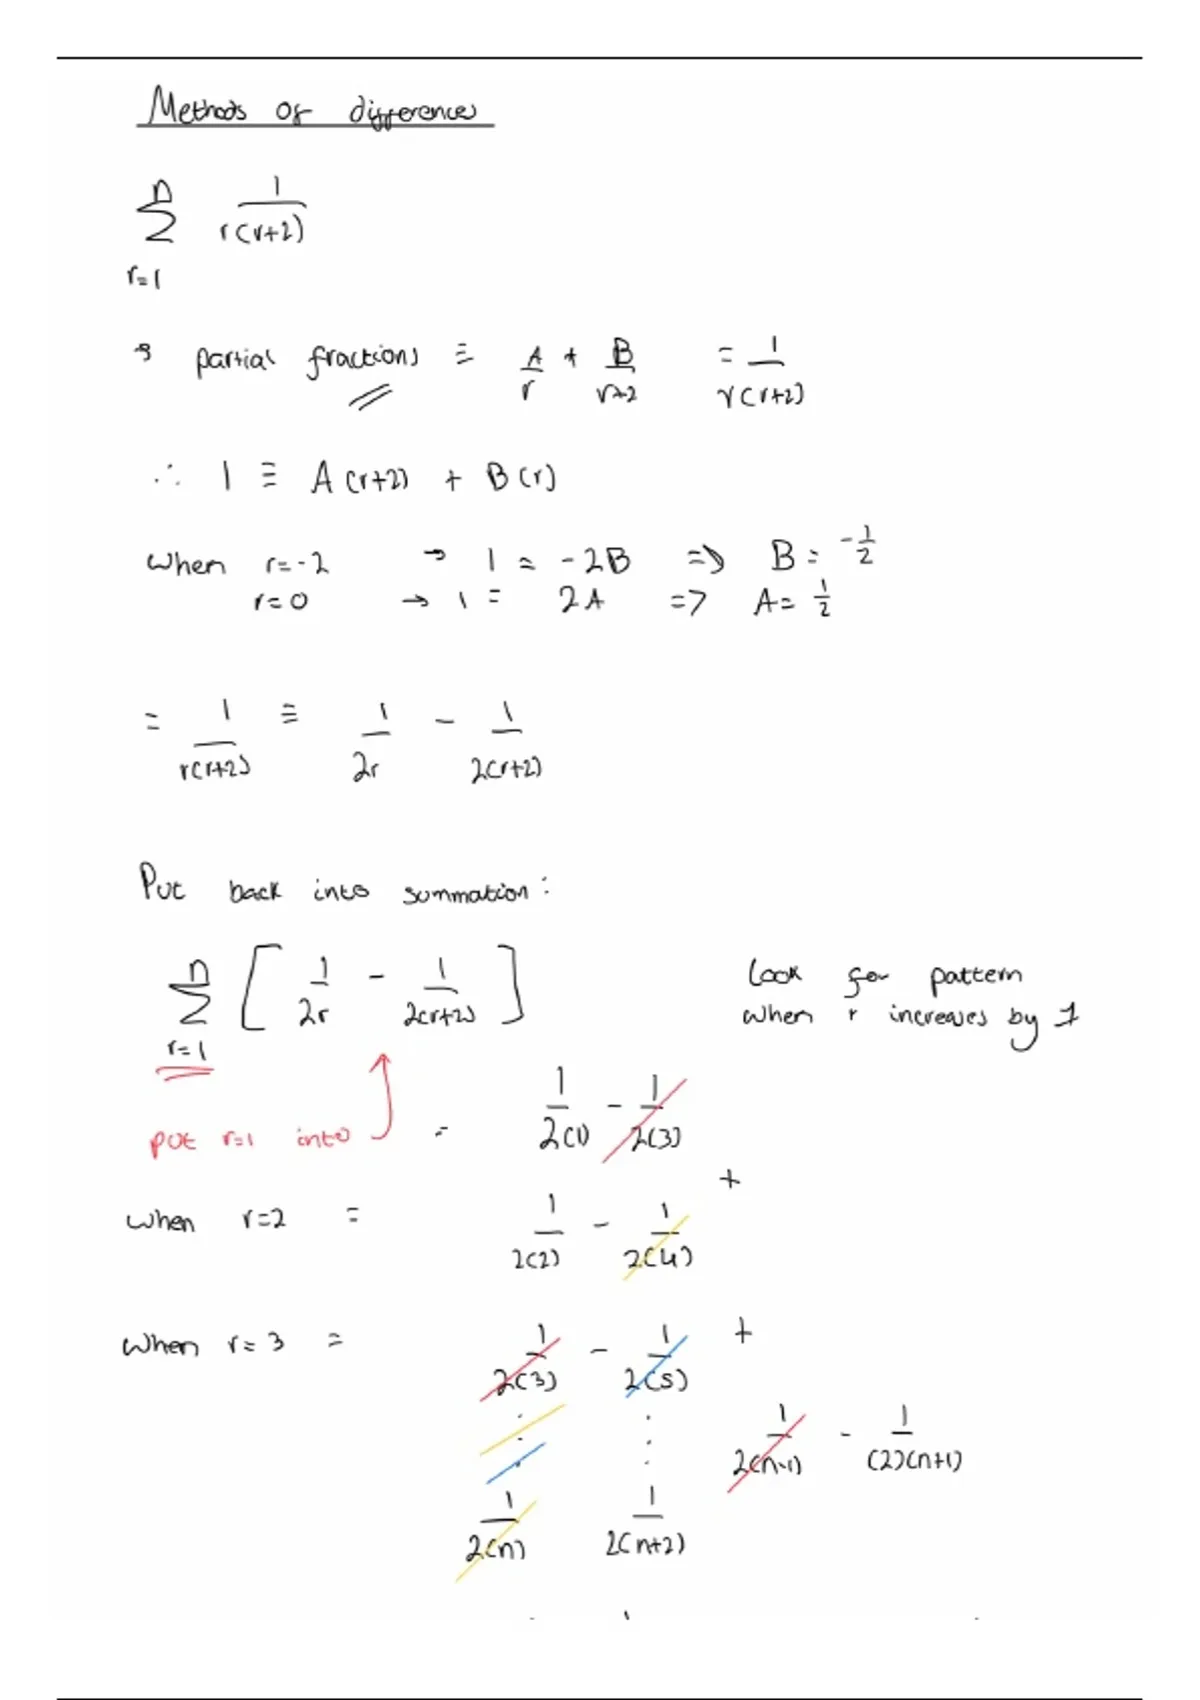 Methods of differences
n
∑ 1/r(r+2)
r=1
→ partial fractions ≡ A/r + B/r+2 = 1/r(r+2)
∴ 1 ≡ A(r+2) + B(r)
when r=-2 → 1 = -2B => B = -1/2
r=0 → 1 = 2A => A = 1/2
= 1/r(r+2) ≡ 1/2r - 1/2(r+2)
Put back into summation:
n
∑ [ 1/2r - 1/2(r+2) ]
r=1
Look for pattern
when r increases by 1
put r=1 into = 1/2(1) - 1/2(3)
+
when r=2 = 1/2(2) - 1/2(4)
when r=3 = 1/2(3) - 1/2(5) +
1/2(n-1) - 1/(2)(n+1)
1/2(n) 1/2(n+2)